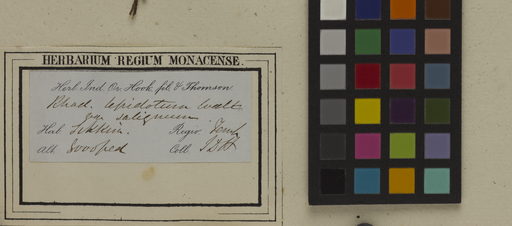 HERBARIUM REGIUM MONACENSE.
Herb. Ind. Or. Hook. fil. & Thomson
Rhod. lepidotum Wall
salignum
Hab. Sikkim. Regio Temp.
Alt. 8000 ped Coll. J D H